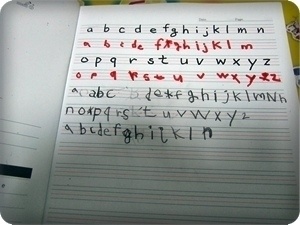 a b c d e f g h i j k l m n
a b c d e f g h i j k l m
o p q r s t u v w x y z
o p q r s t u v w x y z
a abc b defghijklmNh
nopqrstuvwxyz
abcdefghijkln